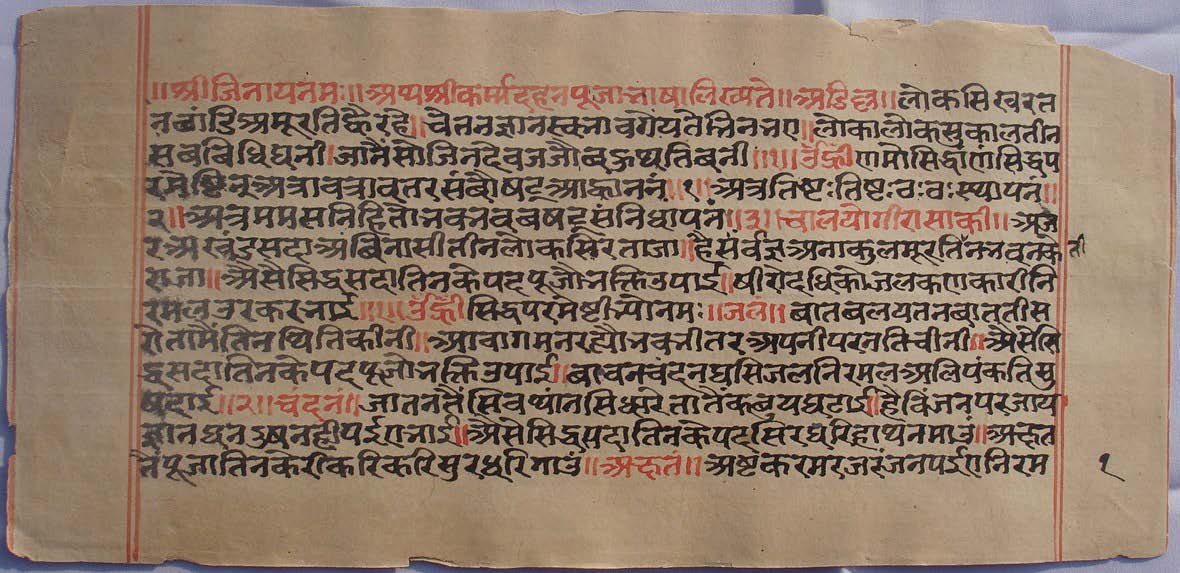 ॥श्रीजिनायनमः॥अथश्रीकर्म्मदहनपूजाभाषालिख्यते॥अडिल्ल॥लोकसिखरत
नछांडिअमूरतिह्वैरहे॥चेतनज्ञानसुभाव
लोकालोकसुकालतीन
सबबिधिघनी॥जानैंसोजिनदेवजजौंबहुथुतिबनी॥१॥ॐह्रींणमोसिद्धाणंसिद्धप
रमेष्टिन्अत्रावतरावतरसंवौषट्आह्वाननं॥१॥अत्रतिष्टःतिष्टःठःठःस्थापनं॥
२॥अत्रममसनिहितोभवभववषट्संनिधापनं॥३॥चालयोगीरासाकी॥अज
रअखंडसदाअबिनासीतीनलोकसिरताजा॥हैसर्वज्ञअनाकुलमूरति
राजा॥अैसेसिद्धसदातिनकेपदपूजौंभक्तिउपाई॥षीरोदधिकोजलकणकारीनि
रमलउरकरभाई॥१॥ॐह्रींसिद्धपरमेष्टीभ्योनमः॥जलं॥बातबलयतनबाततीस
रोतामैंतिनथितिकीनी॥आवागमनरह्यौनभवनीतरअपनीपरनतिचीनी॥अैसेसि
द्धसदातिनकेपदपूजौंभक्तिउपाई॥बावनचंदनघसिजलनिरमलअलिपंकतिसु
षदाई॥२॥चंदनं॥
हैविंजनपरजाय
ज्ञानघन
अैसेसिद्धसदातिनकेपदसिरधरिहाथनमाउं॥अक्षत
तैपूजातिनकेरीकरिकरिसुरधरिगाउं॥अक्षतं॥अष्टकरमरजरंजनपईएनिरम
१